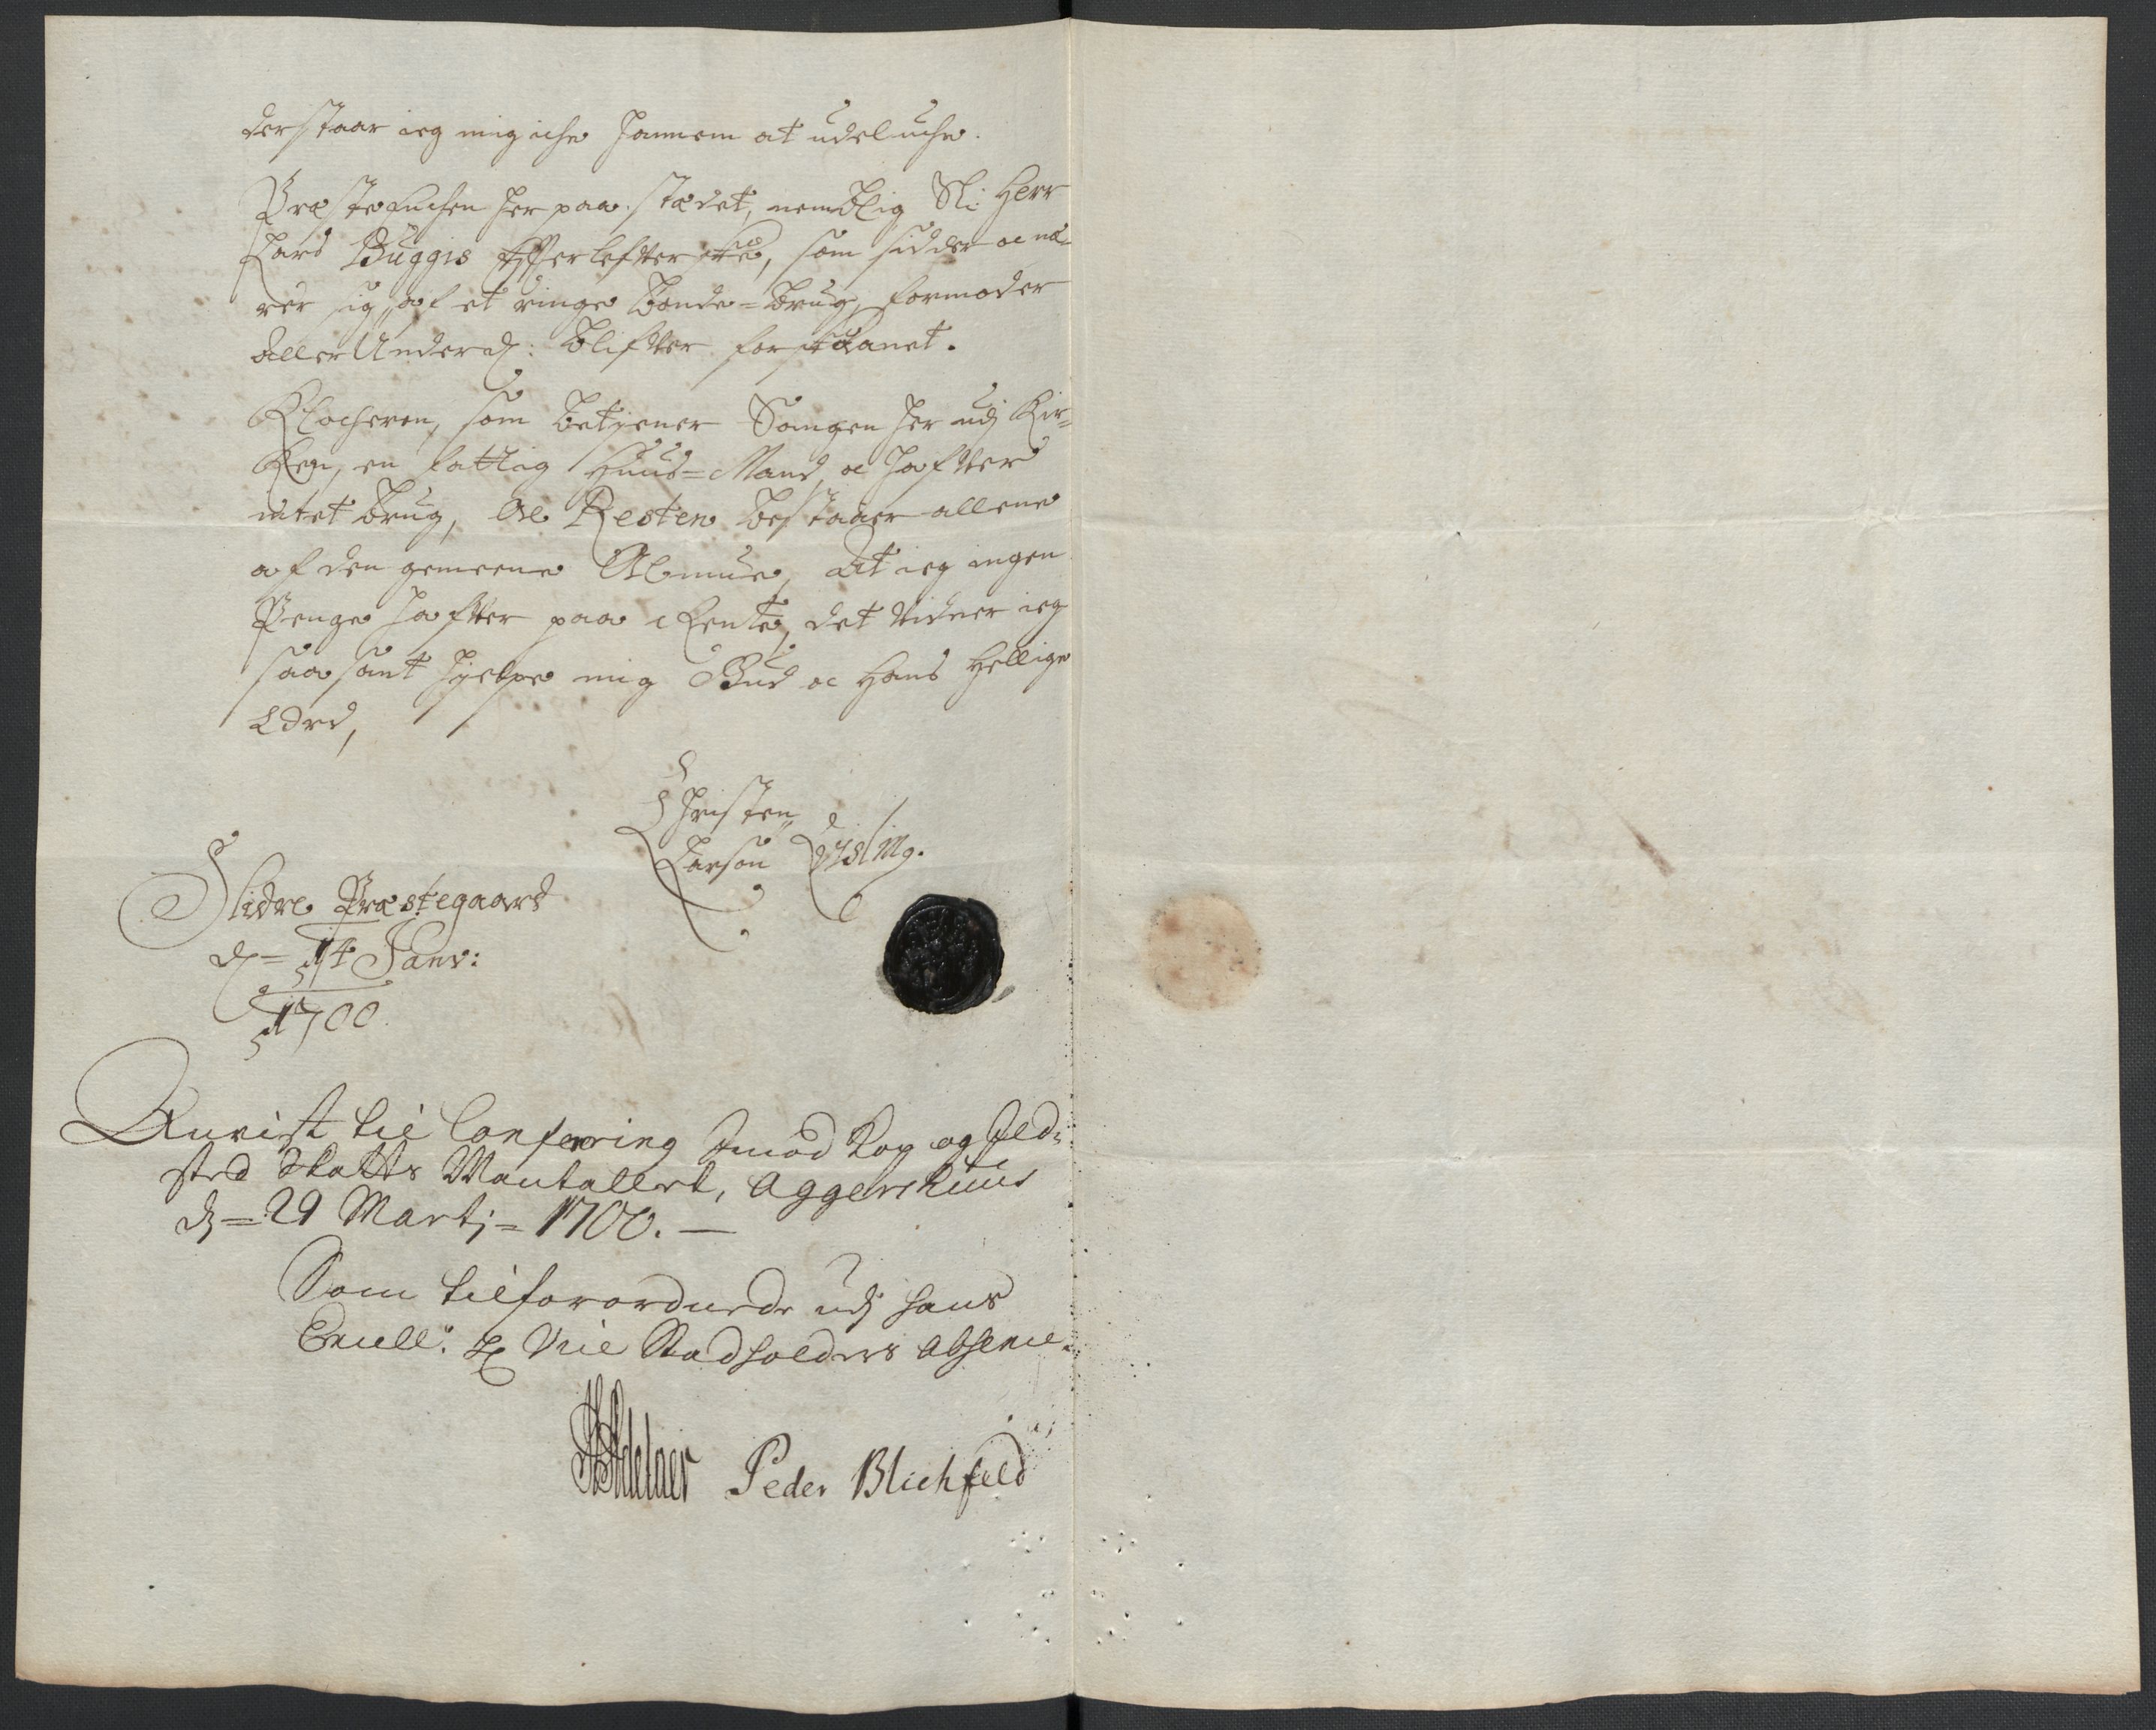 derstaar ieg mig iche hannem at udeluche.
Præste Enchen her paa stædet, nemblig Sl: Herr
Lars Buggis Efferlefver##, som sidder oc næ-
rer sig af et ringe bonde=brug, formoder
aller Underd: blifver forskaanet.
Klocheren, som betiener Sangen her udj Kir-
Ken, en fattig Huus=Mand, oc hafver
intet brug, Oc Resten bestaaer allene
af den gemeene Almue, At ieg ingen
Penge hafver paa Rente, det vidner ieg
saa sant hielpe mig Gud oc Hans Hellige
Ord,
Christen
Larsøn Qvisling.
Slidre Præstegaard
d= 14 Janv:
1700.
Anvist til Conferering Imod Kop og Ild-
sted Skatts Mantallet, Aggershuus
d= 29 Martj= 1700. —
Som tilforordnede udj hans
Excell: H Vice Stadholders Absence.
Adelaer Peder Blichfeld